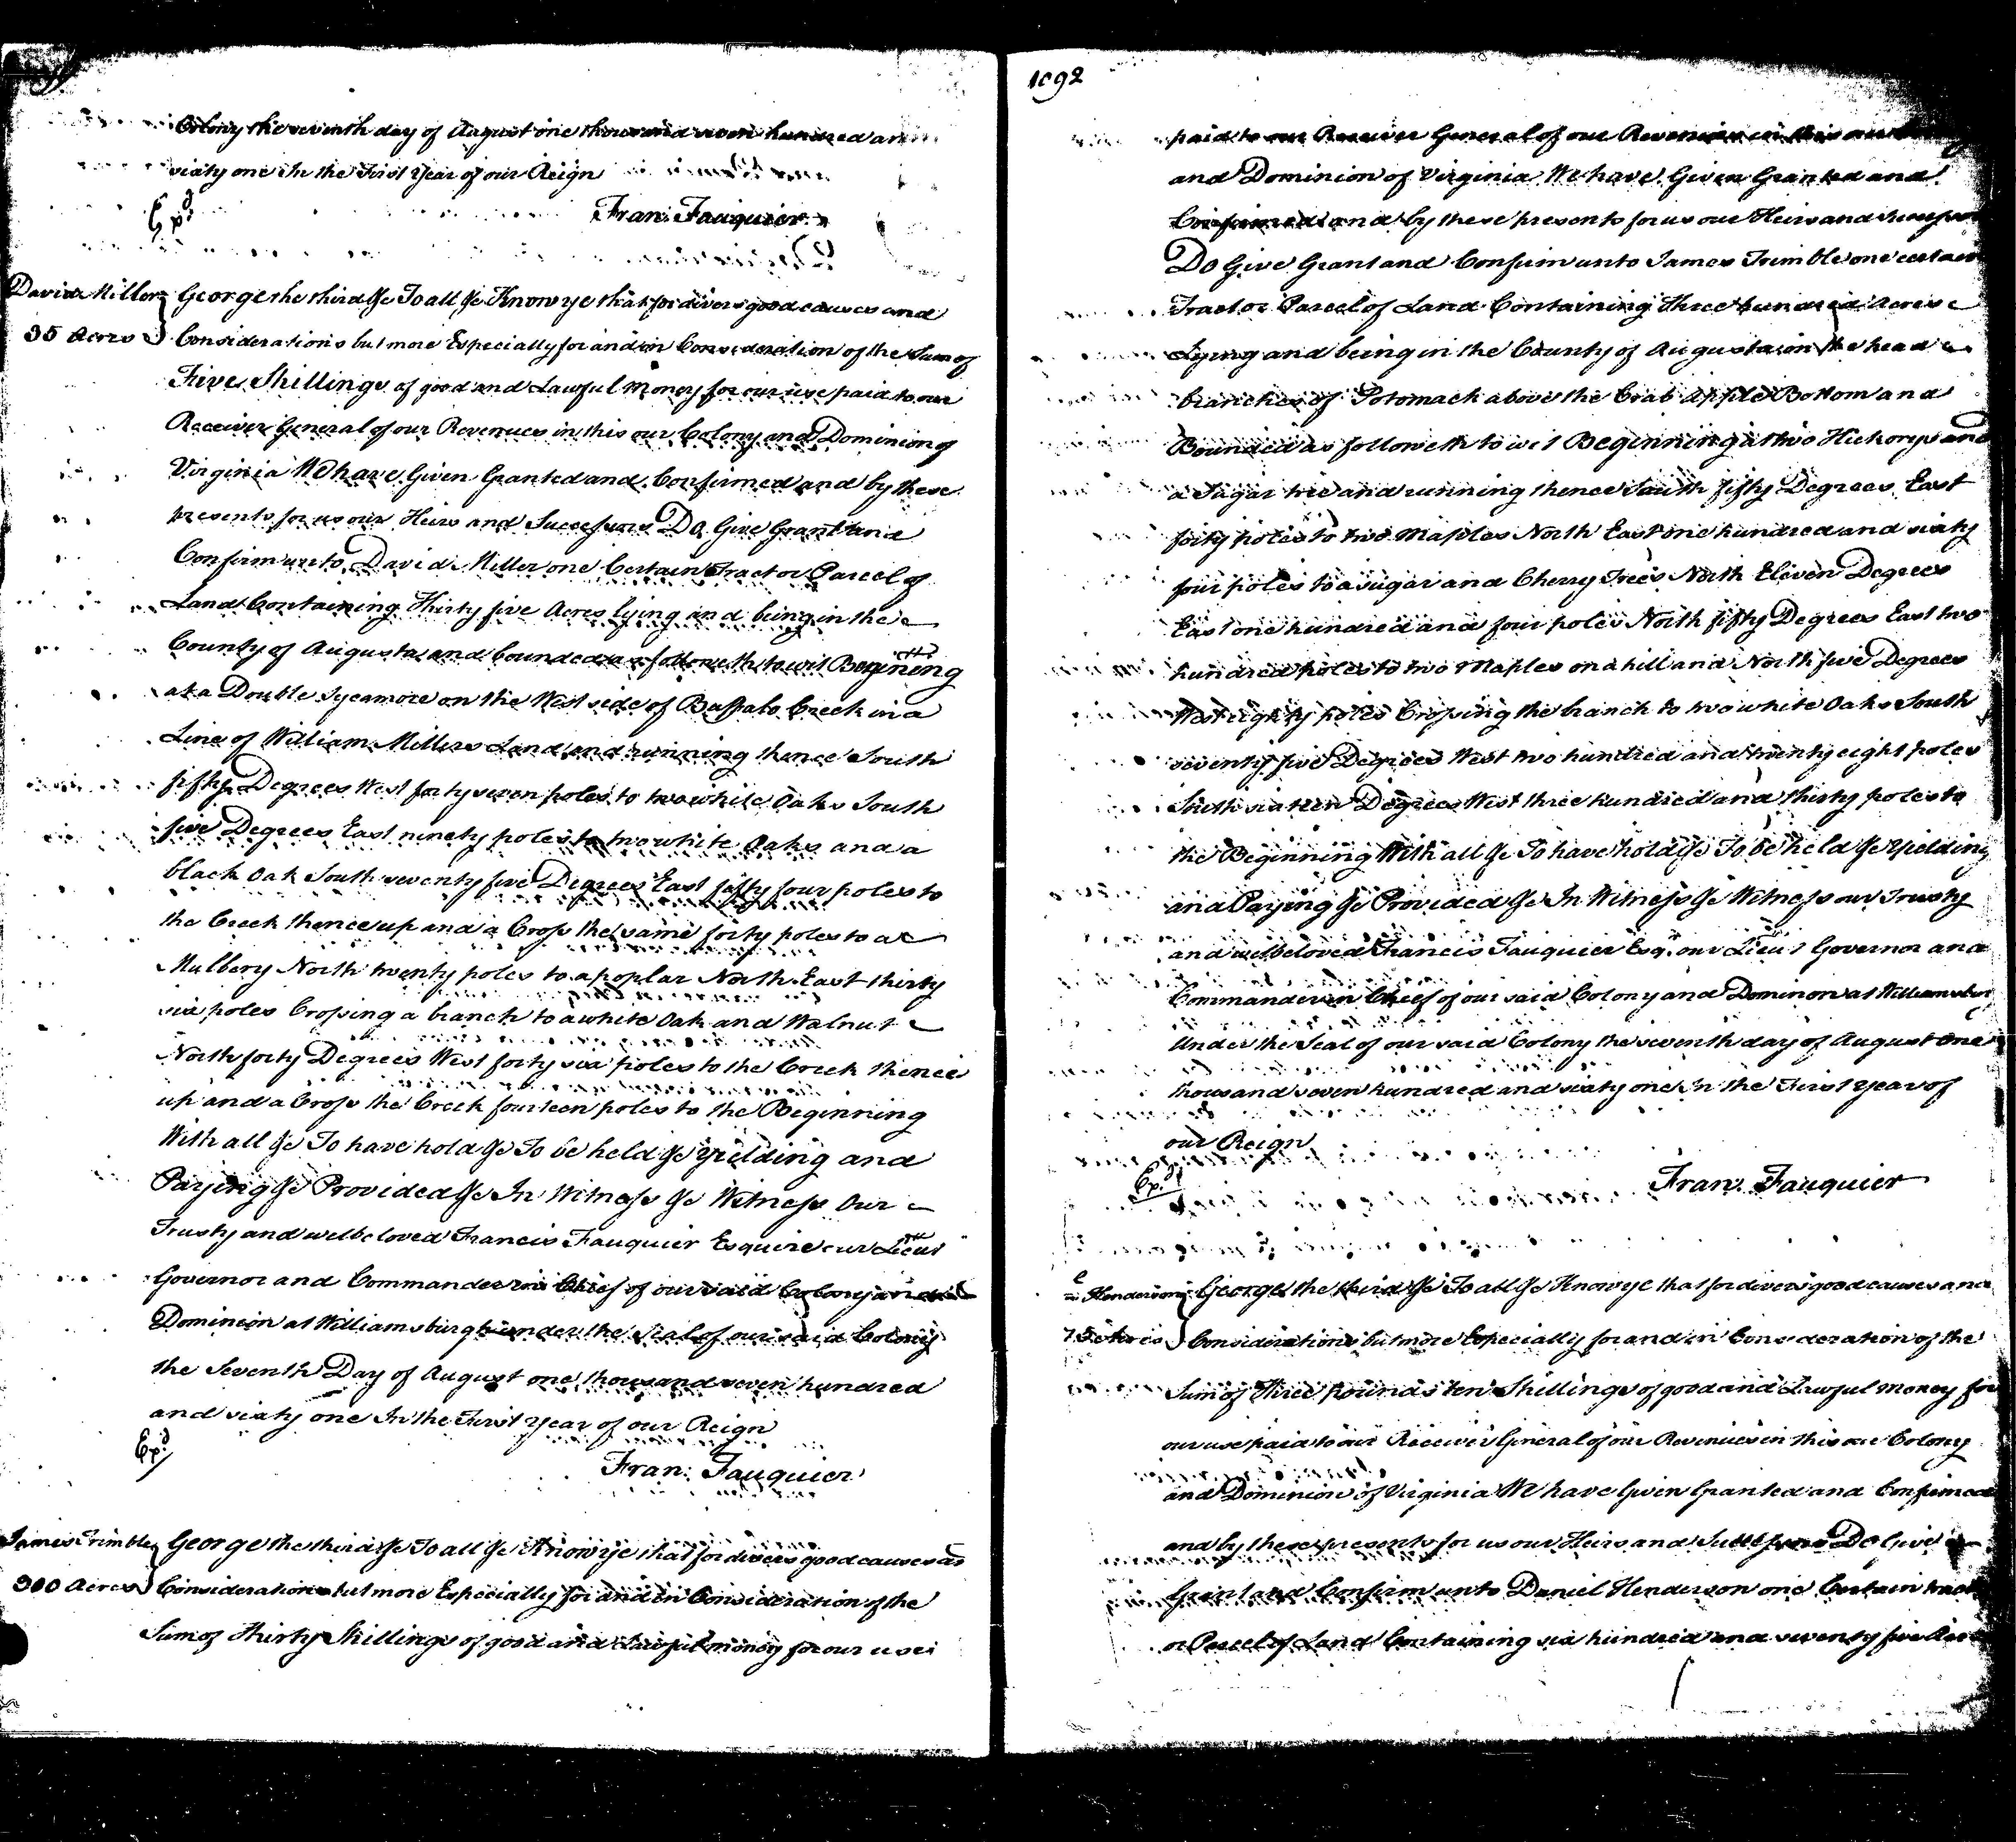 Colony the seventh day of August one thousand seven hundred and
sixty one In the First Year of our Reign
Exd
Fran: Fauquier
David Miller
35 Acres
George the third &c To all &c Know ye that for divers good causes and
Considerations but more Especially for and in Consideration of the Sum of
Five Shillings of good and Lawful Money for our use paid to our
Receiver General of our Revenues in this our Colony and Dominion of
Virginia We have Given Granted and Confirmed and by these
presents for us our Heirs and Successors Do Give Grant and
Confirm unto David Miller one Certain Tract or Parcel of
Land Containing Thirty five Acres lying and being in the
County of Augusta and bounded as followeth to wit Begining
at a Double Sycamore on the West side of Buffalo Creek in a
Line of William Millers Land and running thence South
fifty Degrees West forty seven poles to two white Oaks South
five Degrees East ninety poles to two white Oaks and a
black Oak South seventy five Degrees East fifty four poles to
the Creek thence up and a Cross the same forty poles to a
Mulbery North twenty poles to a poplar North East thirty
six poles Crossing a branch to a white Oak and Walnut
North forty Degrees West forty six poles to the Creek thence
up and a Cross the Creek fourteen poles to the Beginning
With all &c To have hold &c To be held &c Yielding and
Paying &c Provided &c In Witness &c Witness Our
Trusty and welbeloved Francis Fauquier Esquire our Lieut
Governor and Commander in Chief of our said Colony and
Dominion at Williamsburgh under the Seal of our said Colony
the Seventh Day of August one thousand seven hundred
and sixty one In the First Year of our Reign
Exd
Fran: Fauquier
James Trimble
300 Acres
George the third &c To all &c Know ye that for divers good causes and
Considerations but more Especially for and in Consideration of the
Sum of Thirty Shillings of good and Lawful money for our use
1092
paid to our Receiver General of our Revenues in this our
and Dominion of Virginia We have Given Granted and
Confirmed and by these presents for us our Heirs and Successors
Do Give Grant and Confirm unto James Trimble one certain
Tract or Parcel of Land Containing Three hundred Acres
Lying and being in the County of Augusta on the head
branches of Potomack above the Crab Apple Bottom and
Bounded as followeth to wit Beginning at two Hickorys and
a Sugar tree and running thence South fifty Degrees East
forty poles to two Maples North East one hundred and sixty
four poles to a sugar and Cherry Trees North Eleven Degrees
East one hundred and four poles North fifty Degrees East two
hundred poles to two Maples on a hill and North five Degrees
West eighty poles Crossing the branch to two white Oaks South
seventy five Degrees West two hundred and twenty eight poles
South sixteen Degrees West three hundred and thirty poles to
the Beginning With all &c To have hold &c To be held &c Yielding
and Paying &c Provided &c In Witness &c Witness our Trusty
and welbeloved Francis Fauquier Esqr. our Lieut Governor and
Commander in Chief of our said Colony and Dominon at Williamsburg
Under the Seal of our said Colony the seventh day of August One
thousand seven hundred and sixty one In the First Year of
our Reign
Exd
Fran: Fauquier
Henderson
75 Acres
George the third &c To all &c Know ye that for divers good causes and
Considerations but more Especially for and in Consideration of the
Sum of Three pounds ten Shillings of good and Lawful Money for
our use paid to our Receiver General of our Revenues in this our Colony
and Dominion of Virginia We have Given Granted and Confirmed
and by these presents for us our Heirs and Successors Do Give
Grant and Confirm unto Daniel Henderson one Certain tract
or Parcel of Land Containing six hundred and seventy five Acres